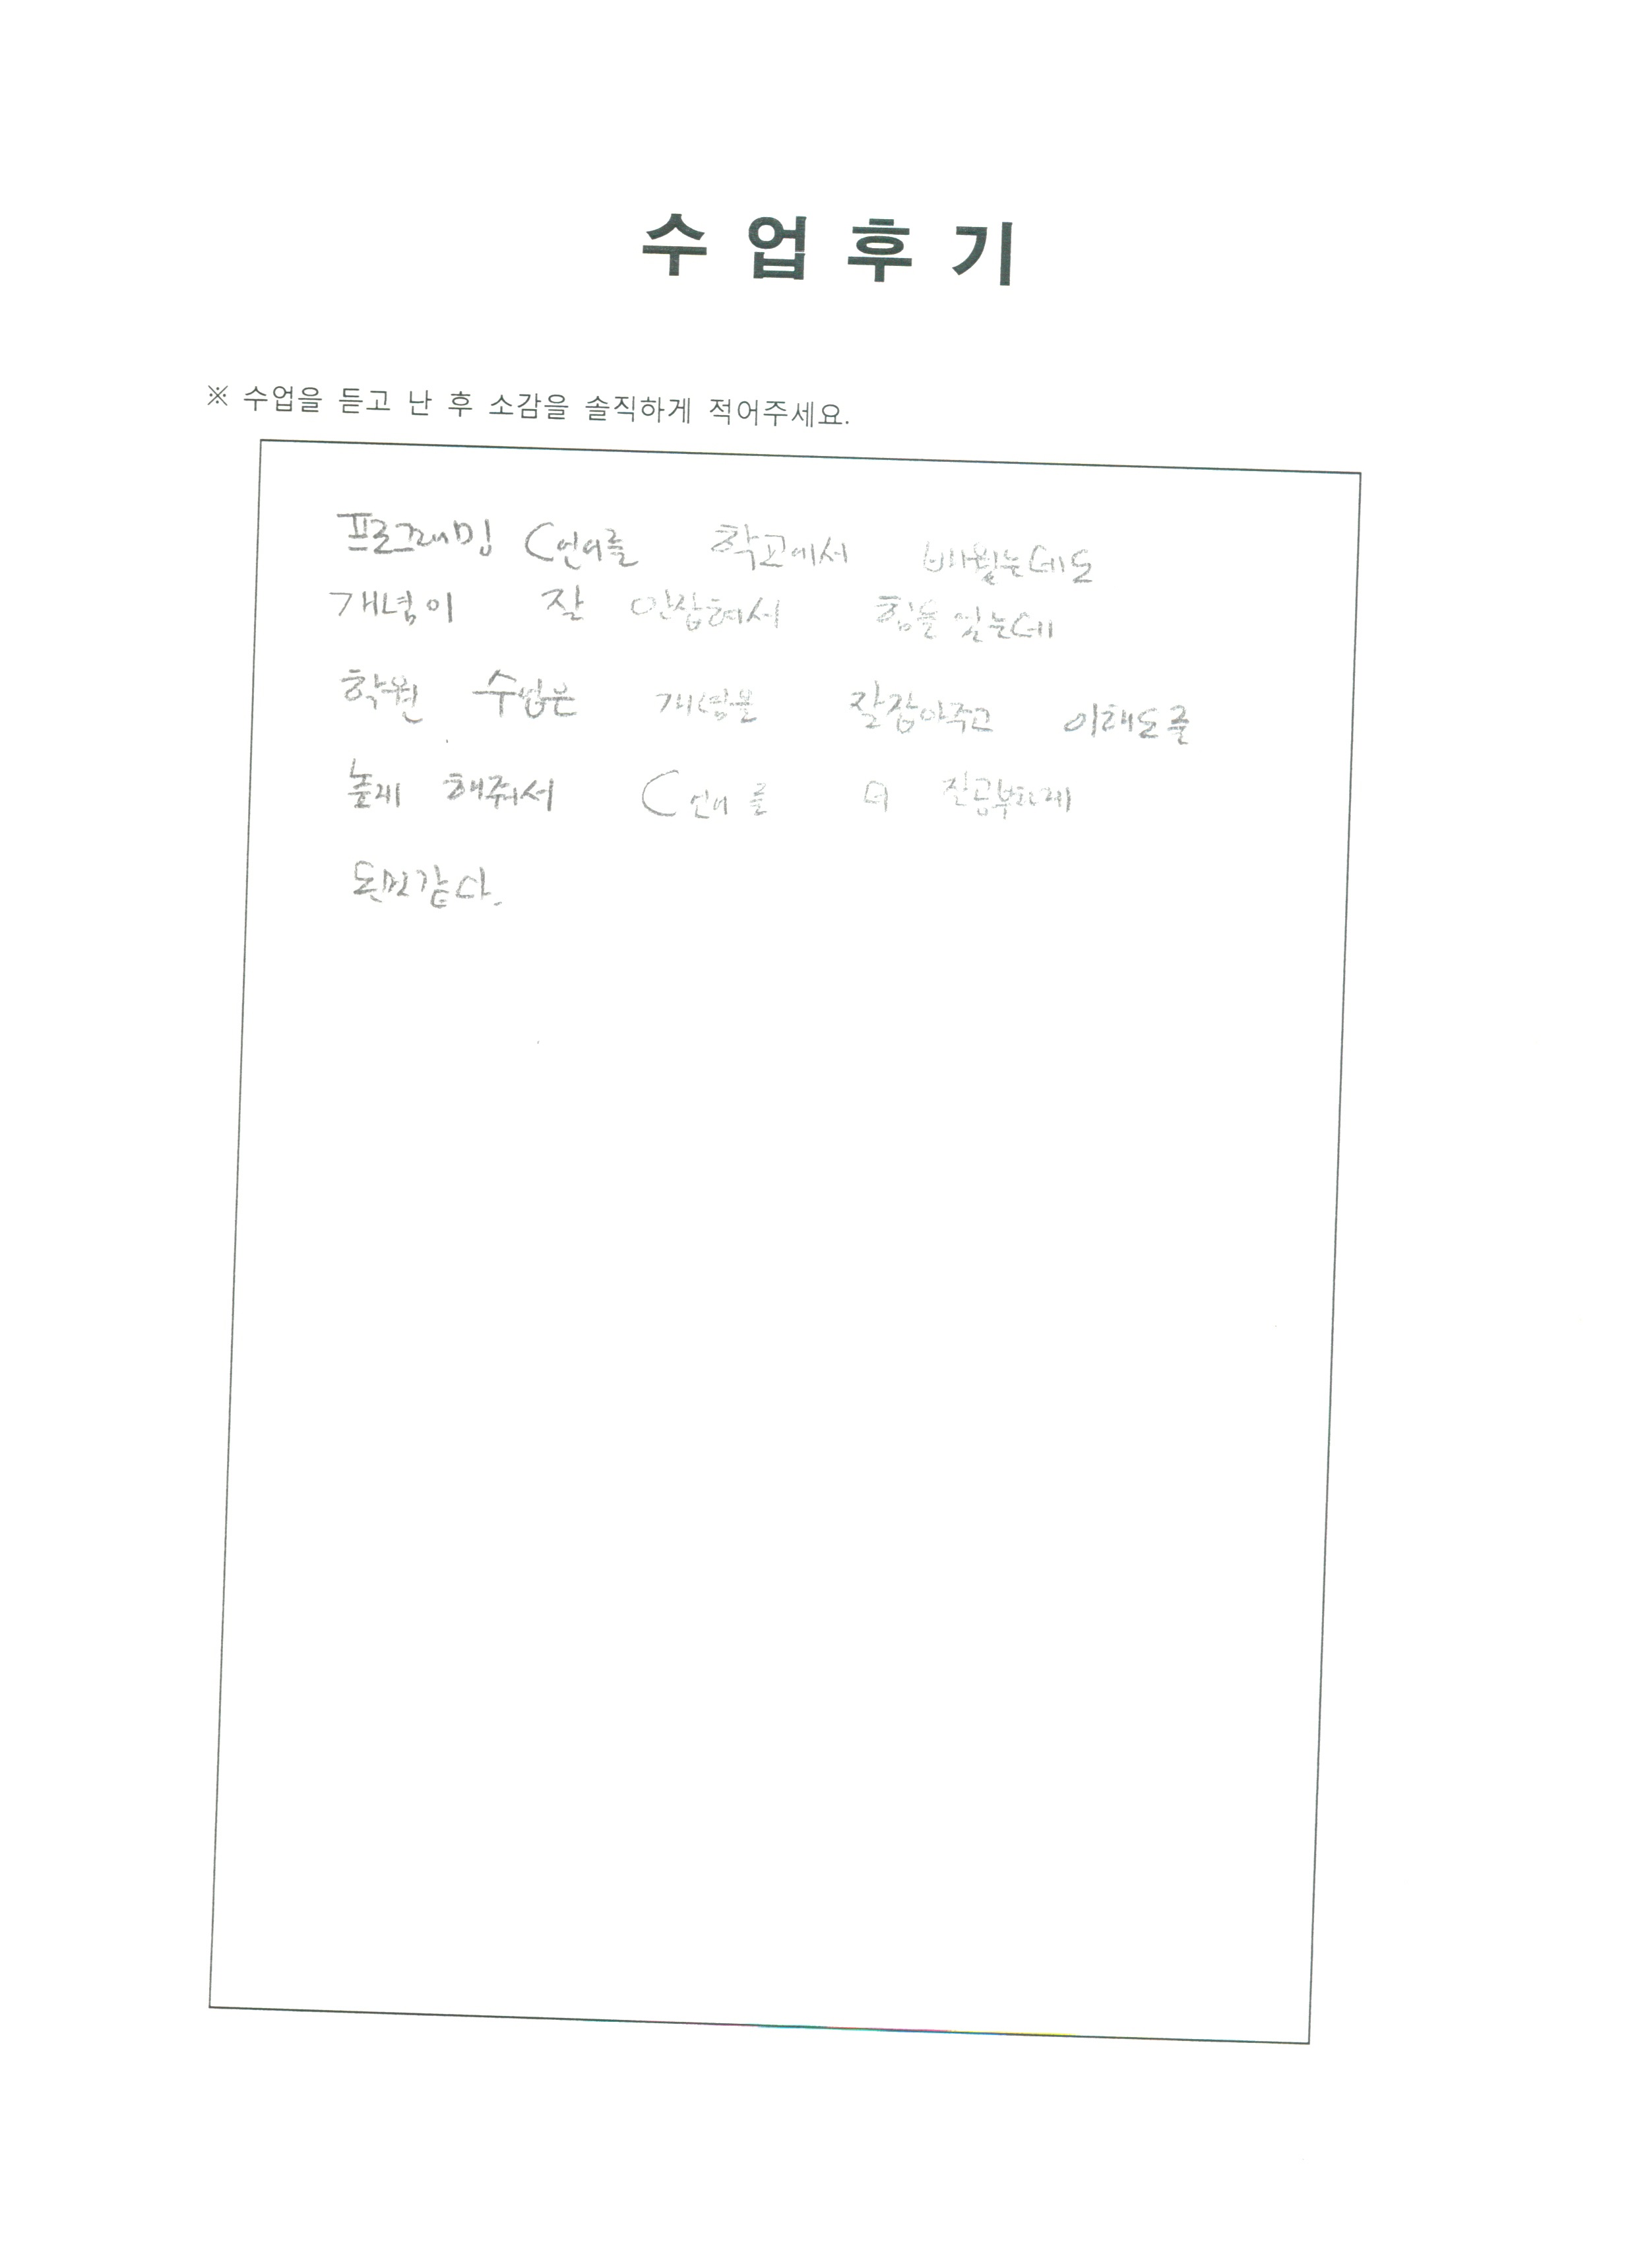 수 업 후 기
※ 수업을 듣고 난 후 소감을 솔직하게 적어주세요.
프로그래밍 C언어를 학교에서 배웠는데도
개념이 잘 안잡혀서 힘들었는데
학원 수업은 개념을 잘잡아주고 이해도를
높게 해줘서 C언어를 더 잘공부하게
된것같다.